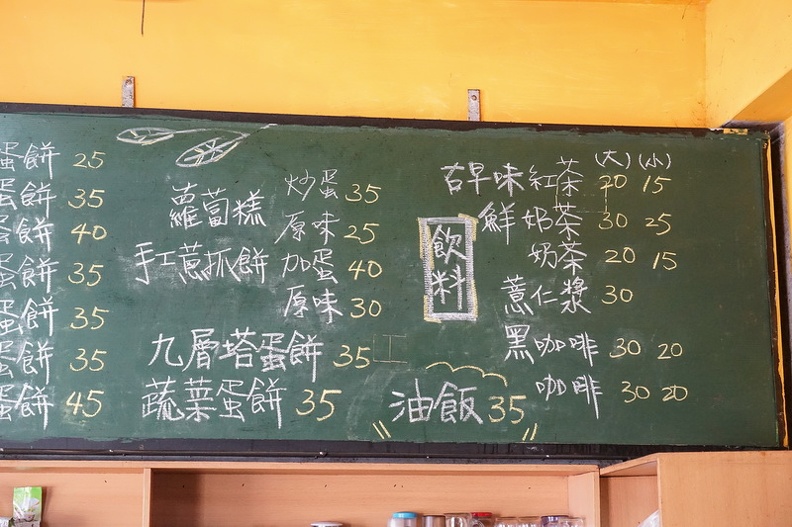 蛋餅 25
蛋餅 35
蛋餅 40
蛋餅 35
蛋餅 35
蛋餅 35
蛋餅 45
蘿蔔糕 炒蛋 35
原味 25
手工蔥抓餅 加蛋 40
原味 30
九層塔蛋餅 35
蔬菜蛋餅 35
飲料
(大) (小)
古早味紅茶 20 15
鮮奶茶 30 25
奶茶 20 15
薏仁漿 30
黑咖啡 30 20
咖啡 30 20
油飯 35